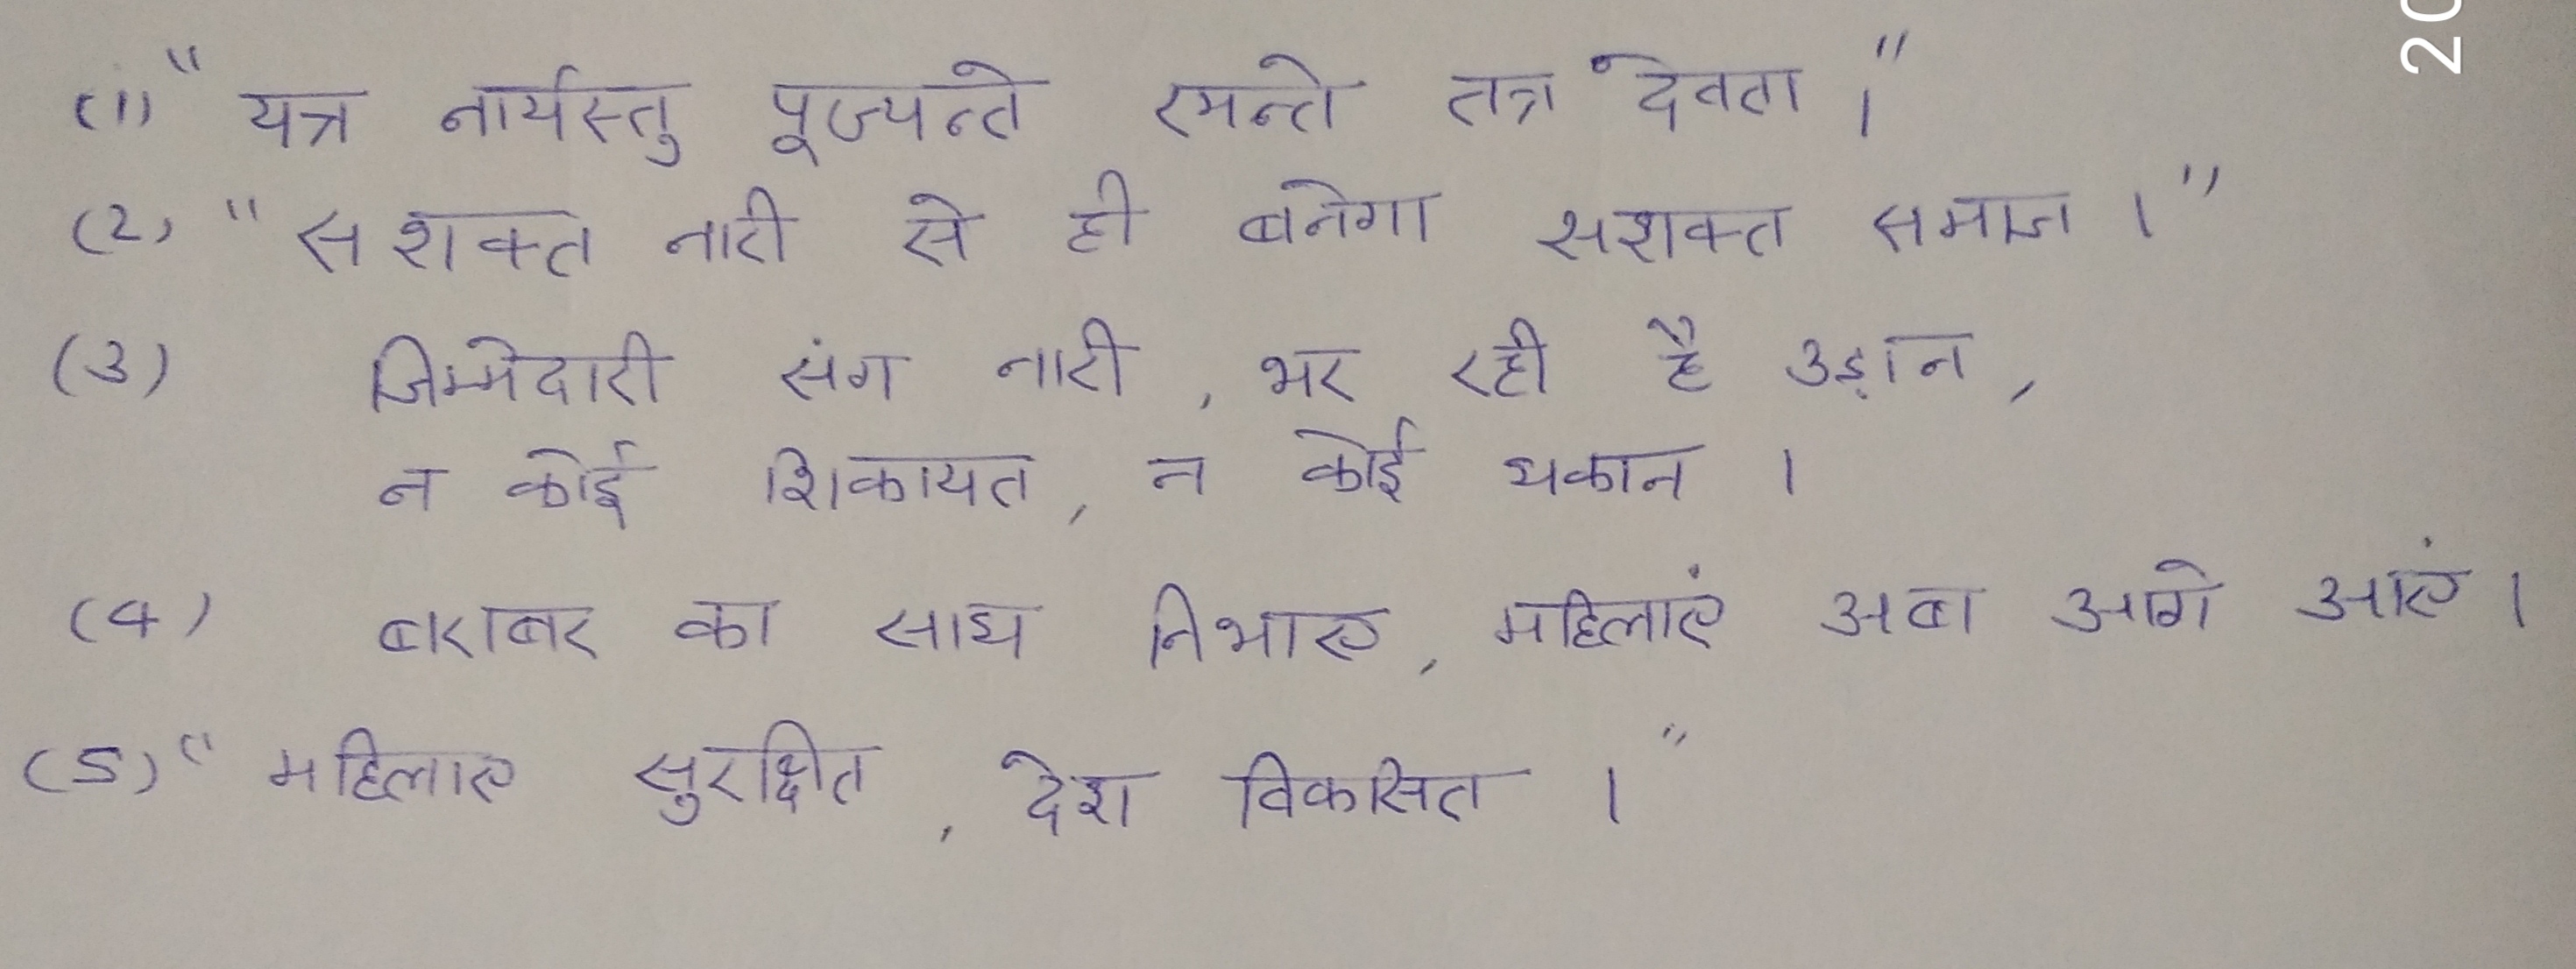 (1) " यत्र नार्यस्तु पूज्यन्ते रमन्ते तत्र देवता ।"
(2) " सशक्त नारी से ही बनेगा सशक्त समाज ।"
(3) जिम्मेदारी संग नारी , भर रही है उड़ान ,
न कोई शिकायत , न कोई थकान ।
(4) बराबर का साथ निभाए , महिलाएं अब आगे आएं ।
(5) " महिलाए सुरक्षित , देश विकसित ।"
20